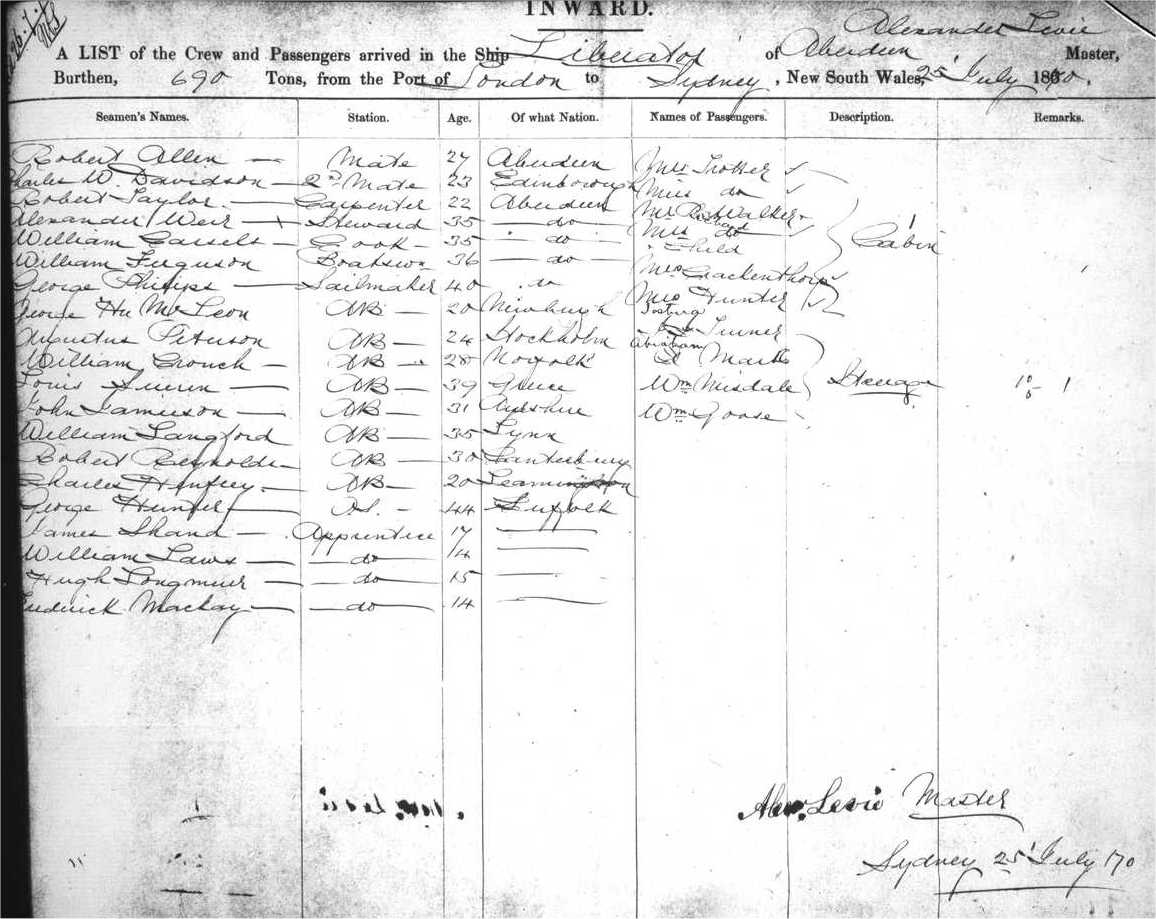 INWARD.
Alexander Levie
A LIST of the Crew and Passengers arrived in the Ship Liberator of Aberdeen Master,
Burthen, 690 Tons, from the Port of London to Sydney, New South Wales, 25 July 1870.
Seamen's Names. Station. Age. Of what Nation. Names of Passengers. Description. Remarks.
Robert Allen — Mate 27 Aberdeen Mrs Trotter
Charles W. Davidson — 2nd Mate 23 Edinborough Miss do
Robert Taylor — Carpenter 22 Aberdeen Mr Walker
Alexander Weir — Steward 35 — do — Mrs do
William Cassels — Cook — 35 — do — " Child Cabin
William Ferguson Boatswn 36 — do — Mrs Crackenthorp
George Philips — Sailmaker 40 do
George Hu McLeon AB — 20 Newburgh Mrs Hunter
Augustus Peterson AB — 24 Stockholm Turner
William Crouch — AB — 28 Norfolk Abraham Marks
Louis — AB — 39 Greece Wm Nisdale Steerage
John Jamieson — AB — 31 Ayrshire Wm Goose
William Langford AB — 35 Lynn
Robert Reynolds — AB — 30 Canterbury
Charles Henfrey — AB — 20 Leamington
George Hunter — O.S. — 44 Suffolk
James Shand — Apprentice 17 —
William Laws — do — 14 —
Hugh Longmuir — do — 15 —
Frederick Mackay — do — 14 —
Alexr. Levie Master
Sydney 25 July 70